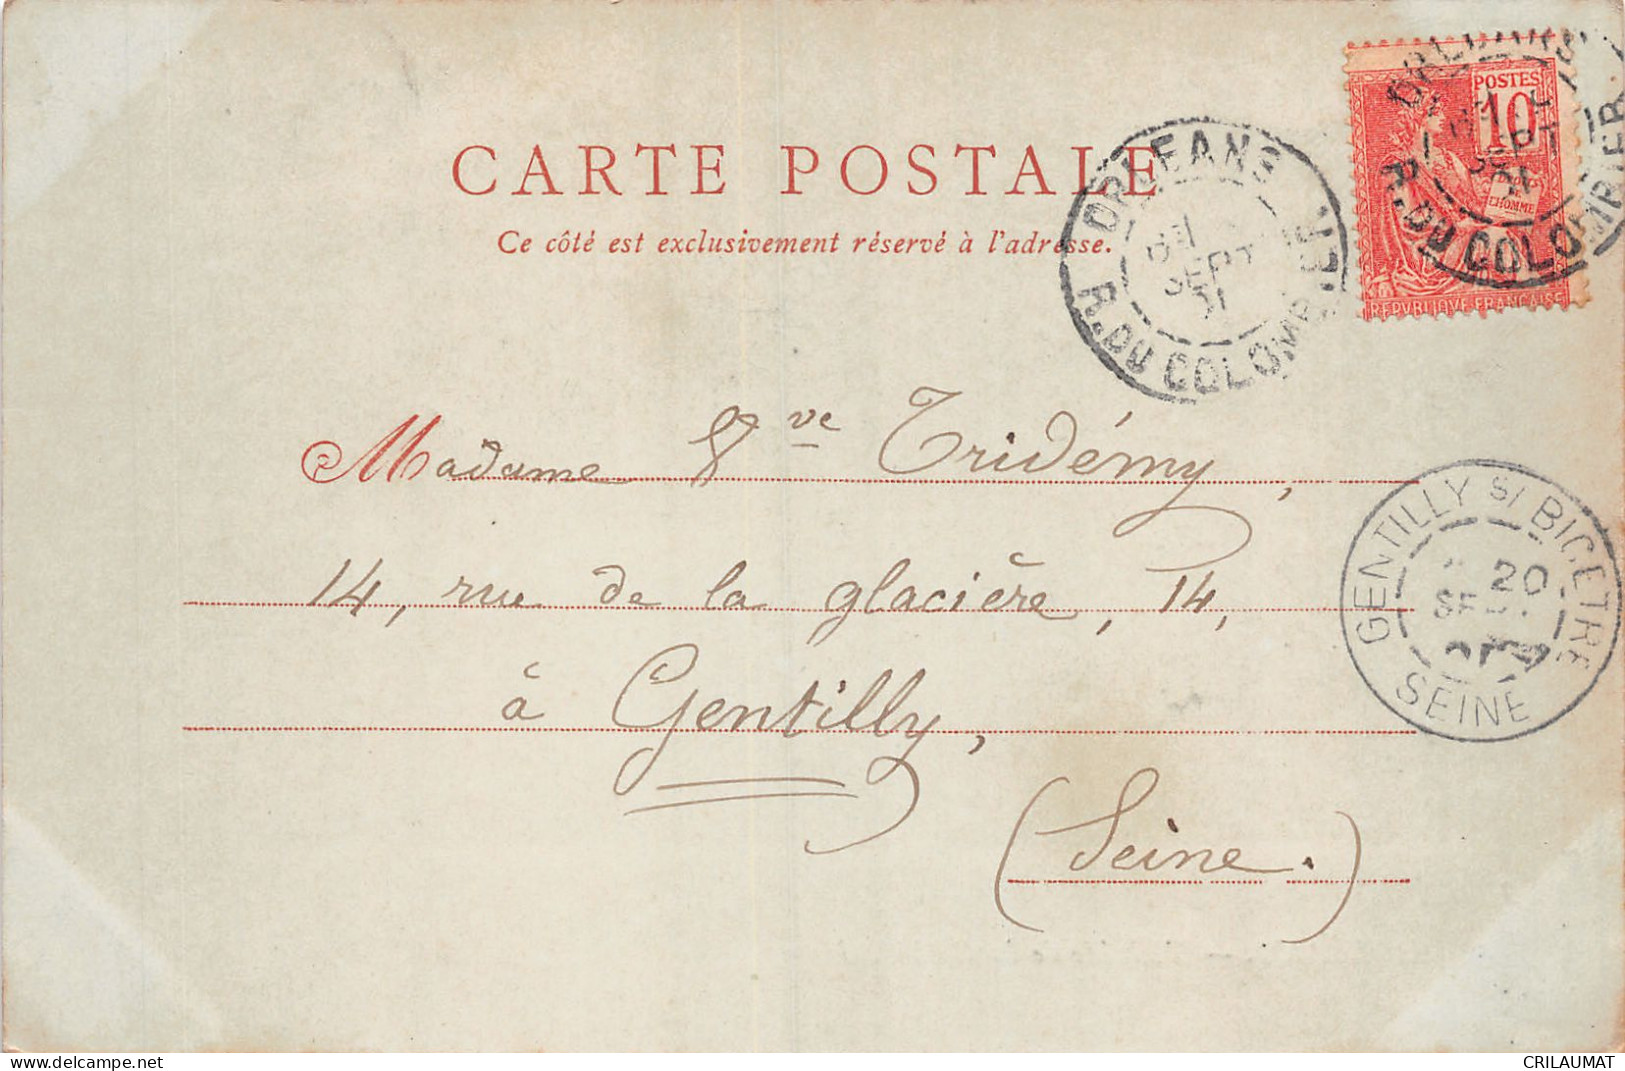 CARTE POSTALE
Ce côté est exclusivement réservé à l'adresse.
ORLEANS
SEPT
01
R. DU COLOMBIER
POSTES
10
L'HOMME
REPVBLIQVE FRANÇAISE
ORLEANS
SEPT
01
R. DU COLOMBIER
Madame Vve Tridémy,
14, rue de la glacière, 14,
à Gentilly,
(Seine.)
GENTILLY S/ BICETRE
20
SEINE
CRILAUMAT